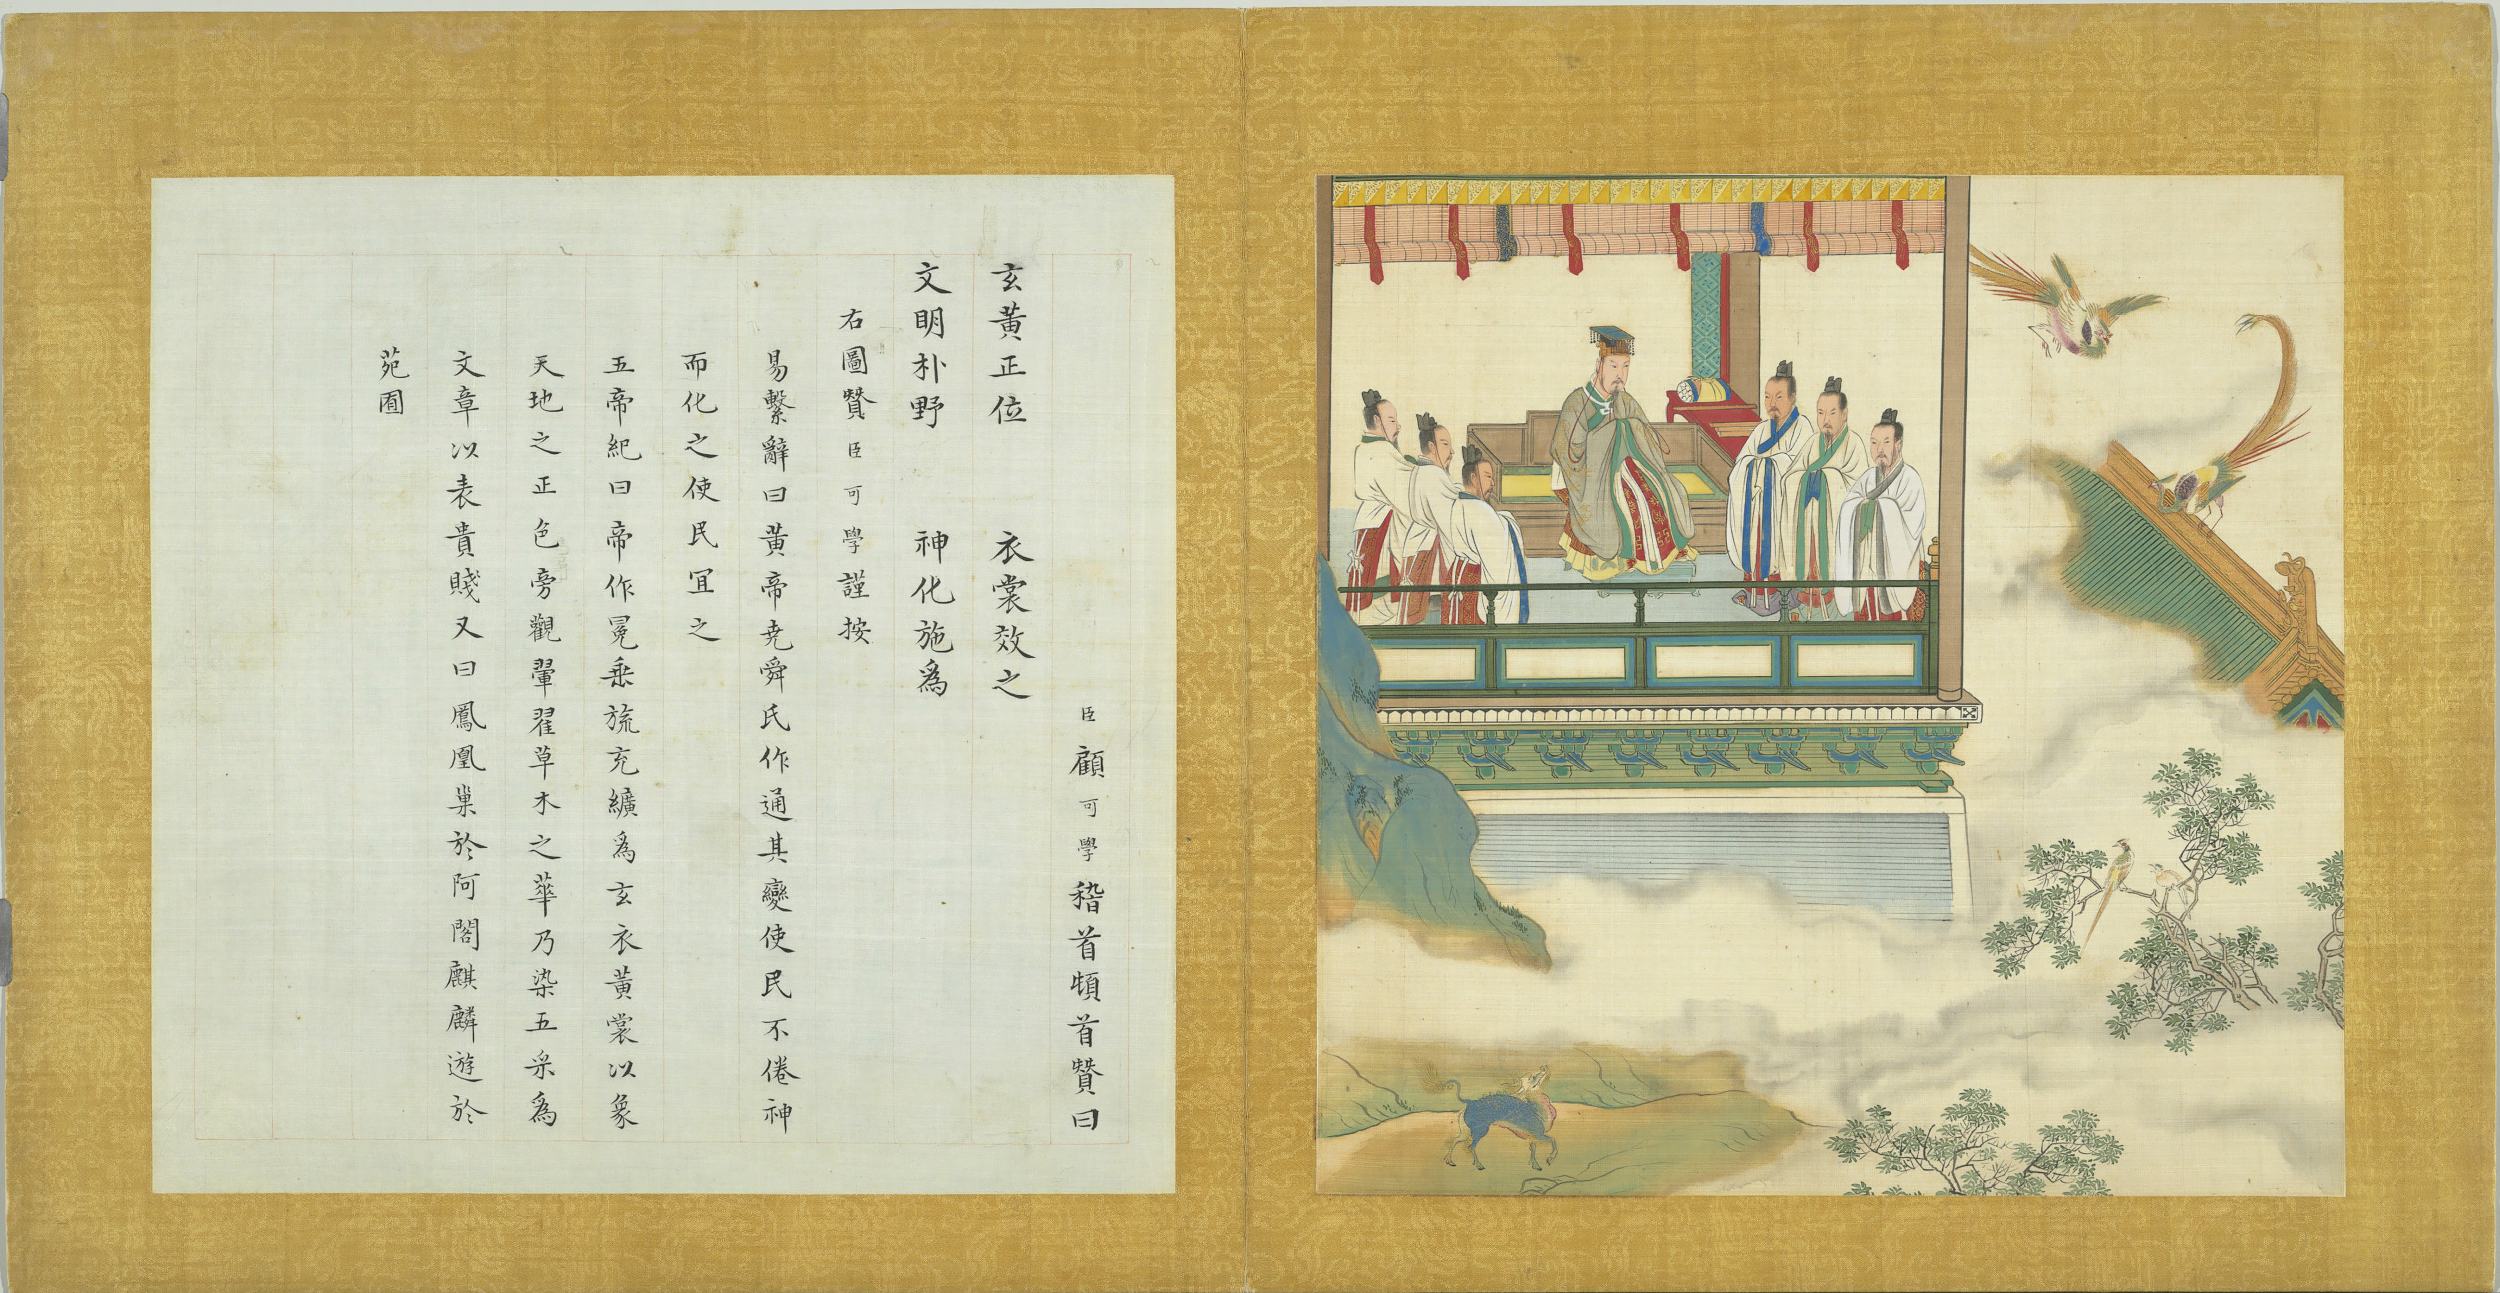 臣顧可學稽首頓首贊曰
玄黃正位 衣裳效之
文明朴野 神化施為
右圖贊臣可學謹按
易繫辭曰黃帝堯舜氏作通其變使民不倦神
而化之使民冝之
五帝紀曰帝作冕乗旒充纊為玄衣黃裳以象
天地之正色旁觀翬翟草木之華乃染五采為
文章以表貴賤又曰鳳凰巢於阿閣麒麟遊於
苑囿